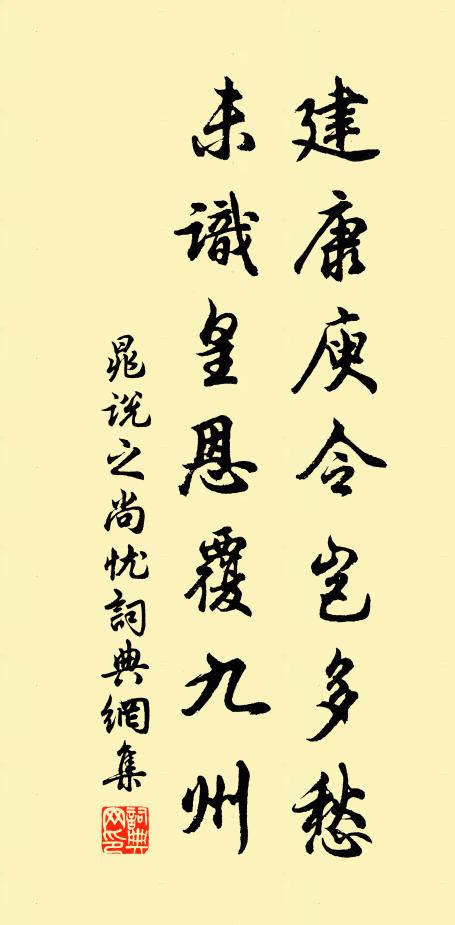 建康庾令岂多愁
未識皇恩覆九州
晁说之尚忧詞典網集
詞典網印